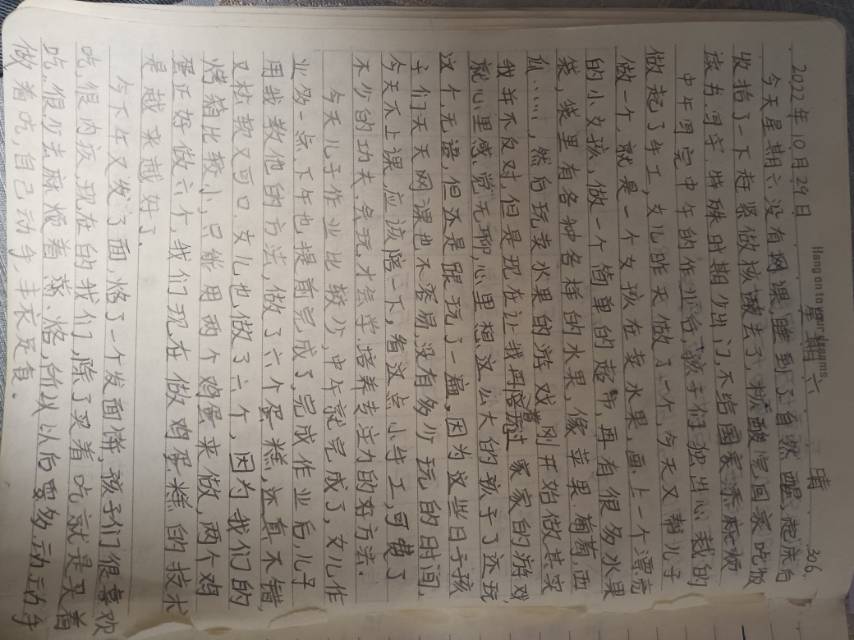 Hang on to your dreams
2022年10月29日 星期六 晴 306.
今天星期六没有网课,睡到了自然醒,起床后
收拾了一下赶紧做核酸去了,核酸完回家吃饭
读书,困牢特殊时期少出门不给国家添麻烦
中午写完中午的作业后,孩子们独出心裁的
做起了手工,女儿昨天做了一个,今天又帮儿子
做一个,就是一个女孩在卖水果,画上一个漂亮
的小女孩,做一个简单的超市,再有很多水果
袋,袋里有各种各样的水果,像苹果,葡萄,西
瓜……,然后玩卖水果的游戏,刚开始做其实
我并不反对,但是现在让我再陪玩过家家的游戏
就心里感觉无聊,心里想这么大的孩子了还玩
这个,无语,但还是跟玩了一遍,因为这些日子孩
子们天天网课也不容易,没有多少玩的时间,
今天不上课,应该陪一下,看这点小手工,可费了
不少的功夫,会玩才会学,培养专注力的好方法.
今天儿子作业比较少,中午就完成了,女儿作
业多一点,下午也提前完成了,完成作业后,儿子
用我教他的方法,做了六个蛋糕,还真不错,
又松软又可口,女儿也做了六个,因为我们的
烤箱比较小,只能用两个鸡蛋来做,两个鸡
蛋正好做六个,我们现在做鸡蛋糕的技术
是越来越好了.
今下午又发了面,烙了一个发面饼,孩子们很喜欢
吃,很内疚,现在的我们,除了买着吃,就是买着
吃,很少去麻烦着蒸、烙,所以以后要多动动手
做着吃,自己动手,丰衣足食。